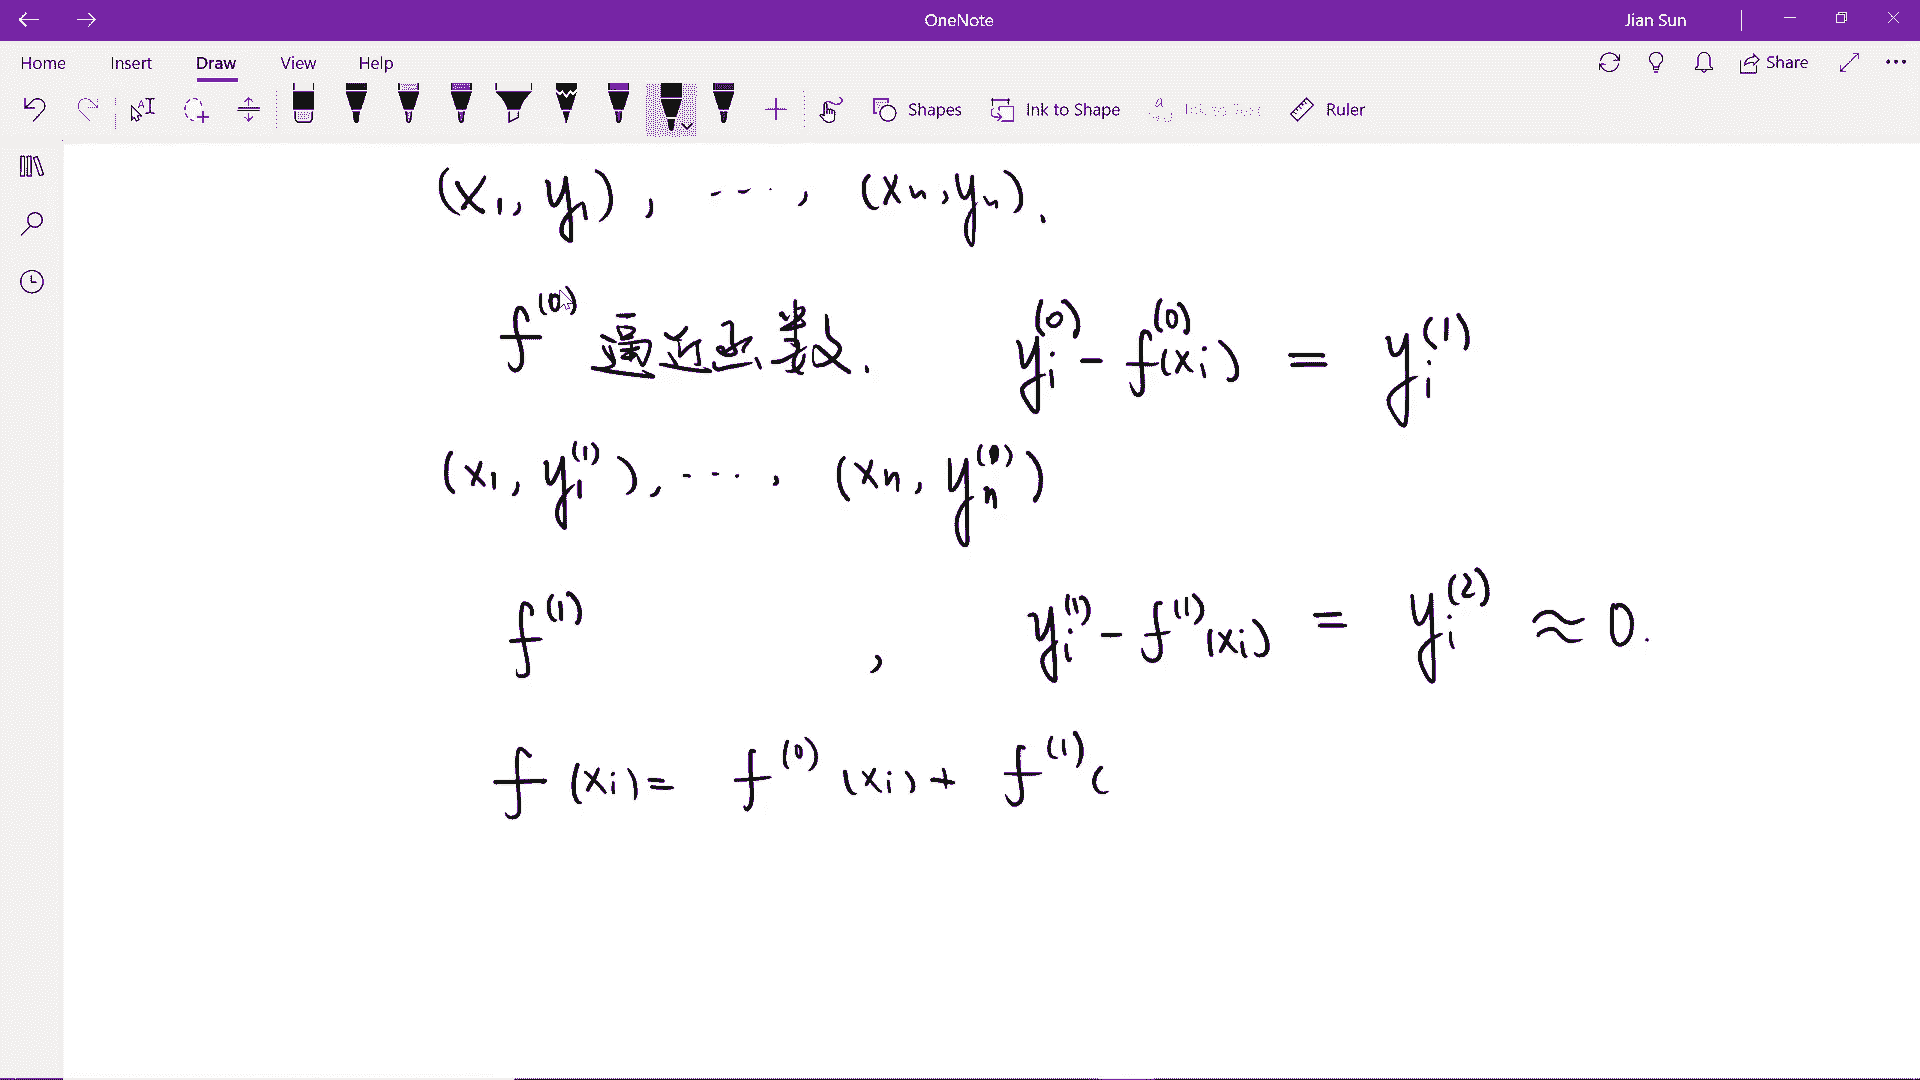 OneNote
Jian Sun
Home Insert Draw View Help
Share
Shapes Ink to Shape Ink to Text Ruler
(x₁, y₁), ⋯, (xₙ, yₙ).
f⁽⁰⁾ 逼近函数. yᵢ⁽⁰⁾ - f⁽⁰⁾(xᵢ) = yᵢ⁽¹⁾
(x₁, y₁⁽¹⁾), ⋯, (xₙ, yₙ⁽¹⁾)
f⁽¹⁾ , yᵢ⁽¹⁾ - f⁽¹⁾(xᵢ) = yᵢ⁽²⁾ ≈ 0.
f(xᵢ) = f⁽⁰⁾(xᵢ) + f⁽¹⁾(